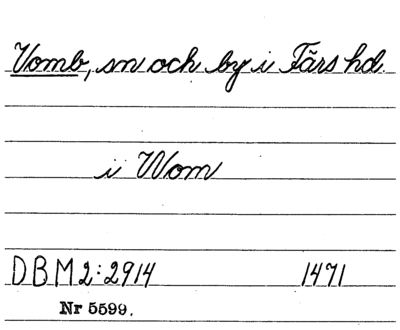 Vomb, sn och by i Färs hd.
i Wom
DBM 2:2914 1471
Nr 5599.